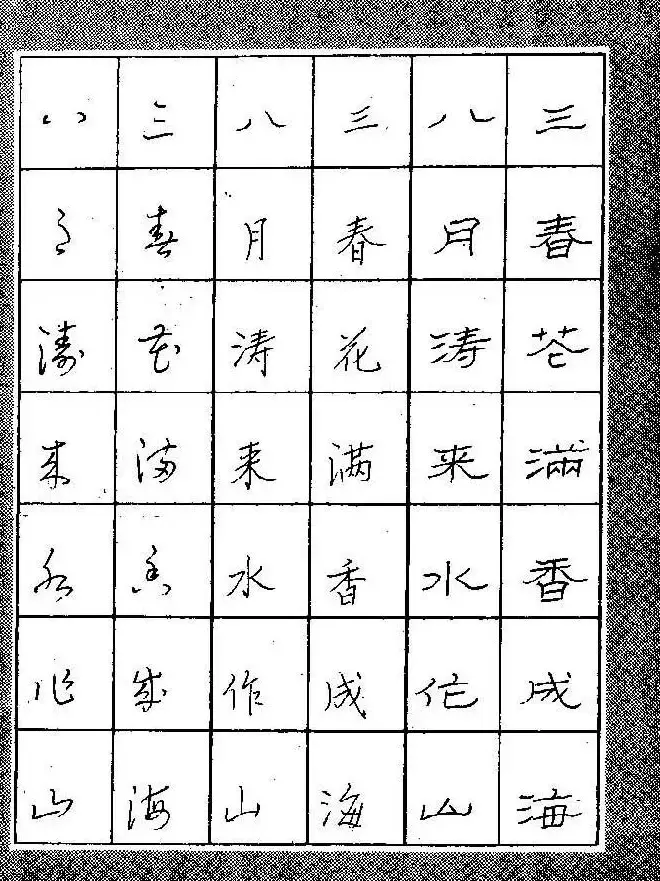 三春花满香成海
八月涛来水作山
三春花满香成海
八月涛来水作山
三春花满香成海
八月涛来水作山